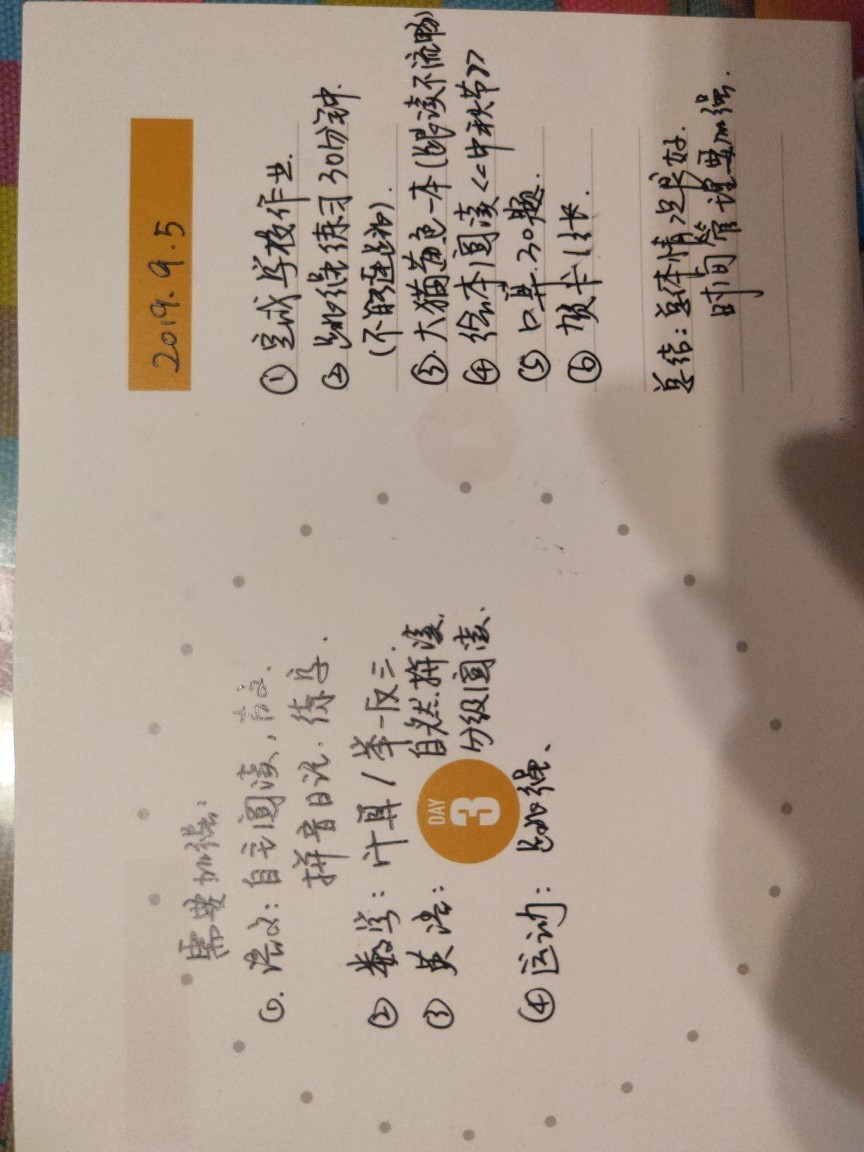 需要加强:
①. 语文: 自主阅读, 古文.
拼音日记. 练字.
② 数学: 计算 / 举一反三.
③ 英语: 自然拼读.
分级阅读.
DAY
3
④ 运动: 跳绳、
2019.9.5
① 完成学校作业.
② 跳绳练习 30分钟.
(不能连跳).
③. 大猫蓝色一本 (跟读不流畅)
④ 绘本阅读 <<中秋节>>
⑤ 口算. 30题.
⑥ 贺卡1张.
总结: 总体情况良好.
时间管理要加强.